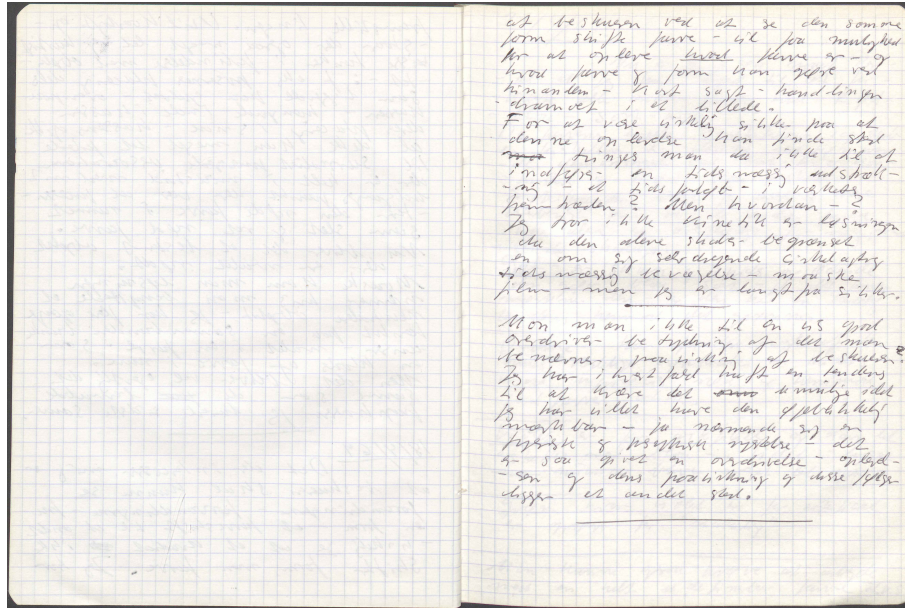 at beskueren ved at se den samme
form skifte farve - til faa mulighed
for at opleve hvad farve er - og
hvad farve og form kan gøre ved
hinanden - kort sagt - handlingen
- dramaet i et billede.
For at være virkelig sikker paa at
denne oplevelse kan finde sted
tvinges man da ikke til at
indføre en tidsmæssig udstræk-
-ning - et tidsforløb - i værkets
fremtræden? Men hvordan - ?
Jeg tror ikke kinetik er løsningen
da den alene skaber begrænset
en om sig selv drejende cirkelagtig
tidsmæssig bevægelse - maaske
film - men jeg er langt fra sikker.
Mon man ikke til en vis grad
overdriver betydning af det man
benævner paavirkning af beskueren?
Jeg har i hvert fald haft en tendens
til at kræve det umulige idet
jeg har villet have den øjeblikkelig
mærkbar - ja nærmende sig en
fysisk og psykisk rystelse - det
er saa givet en overdrivelse - oplevel-
-sen og dens paavirkning og disse følger
ligger et andet sted.